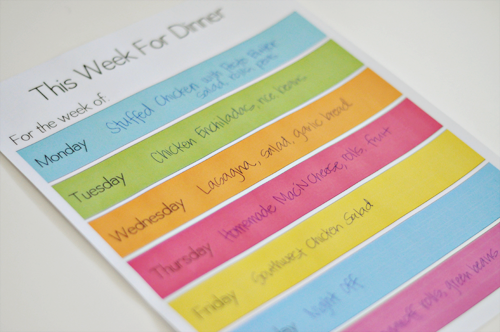 This Week For Dinner
For the week of:
Monday Stuffed Chicken with
salad, rolls, peas
Tuesday Chicken Enchiladas, rice beans
Wednesday Lasagna, salad, garlic bread
Thursday Homemade Mac N Cheese, rolls, fruit
Friday Southwest Chicken Salad
Night Off
rolls, green beans